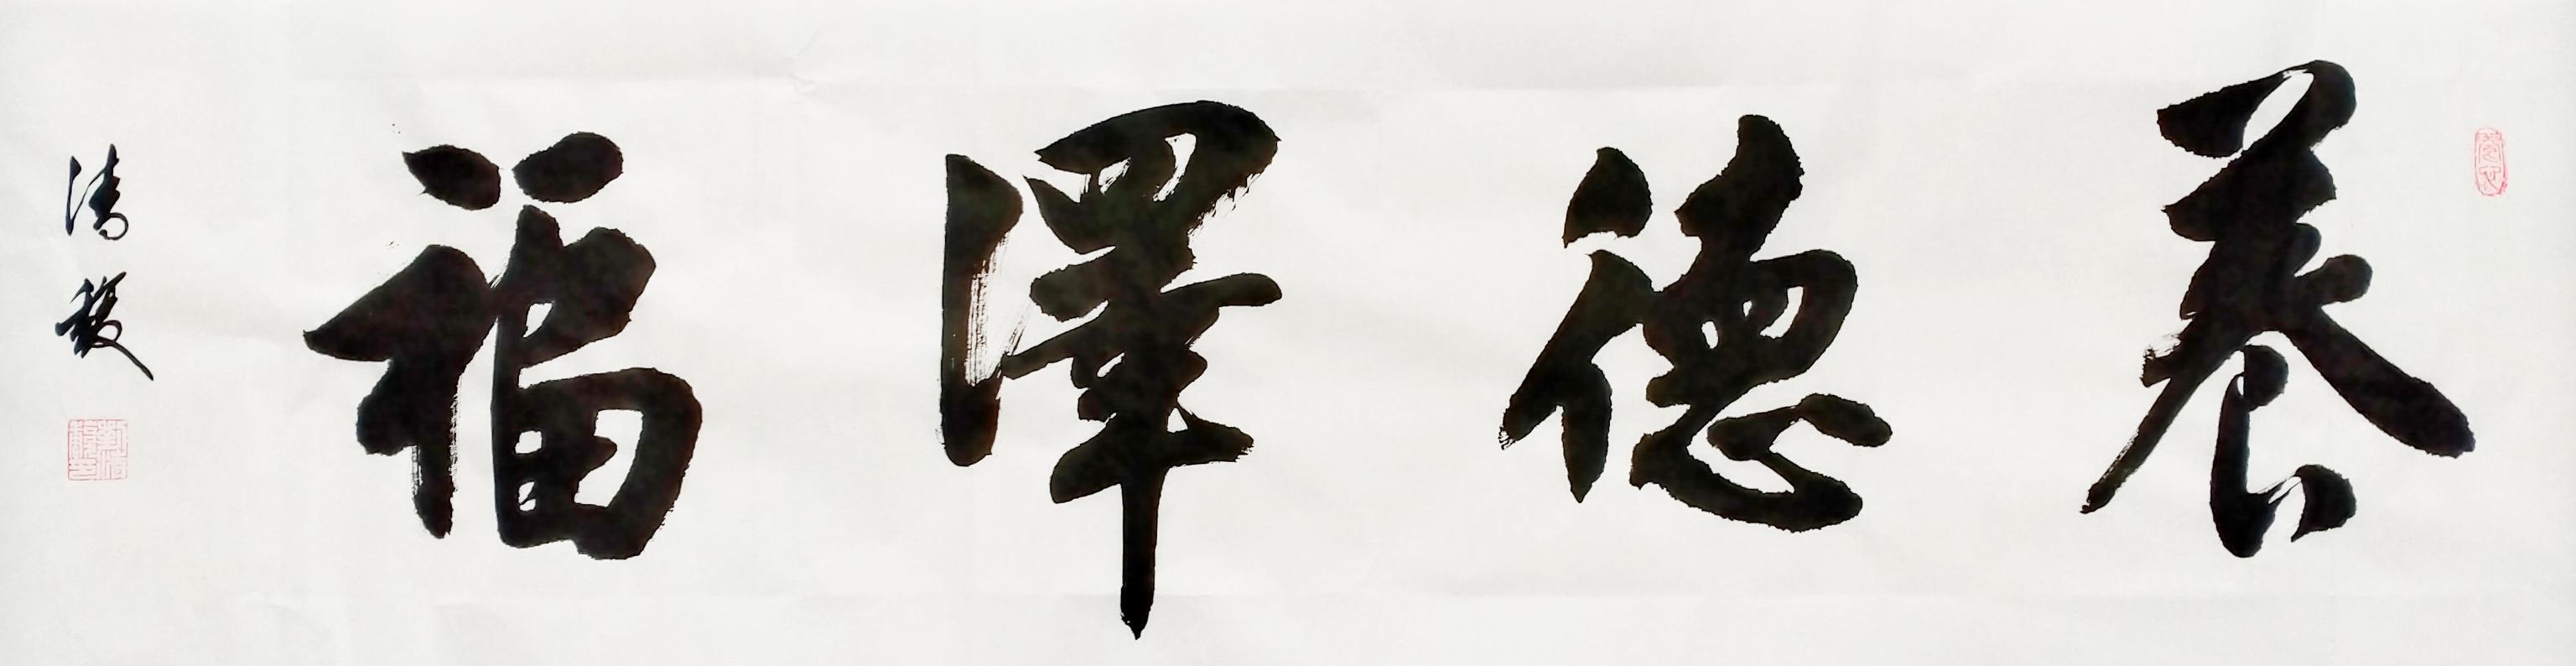 養德澤福
清馥